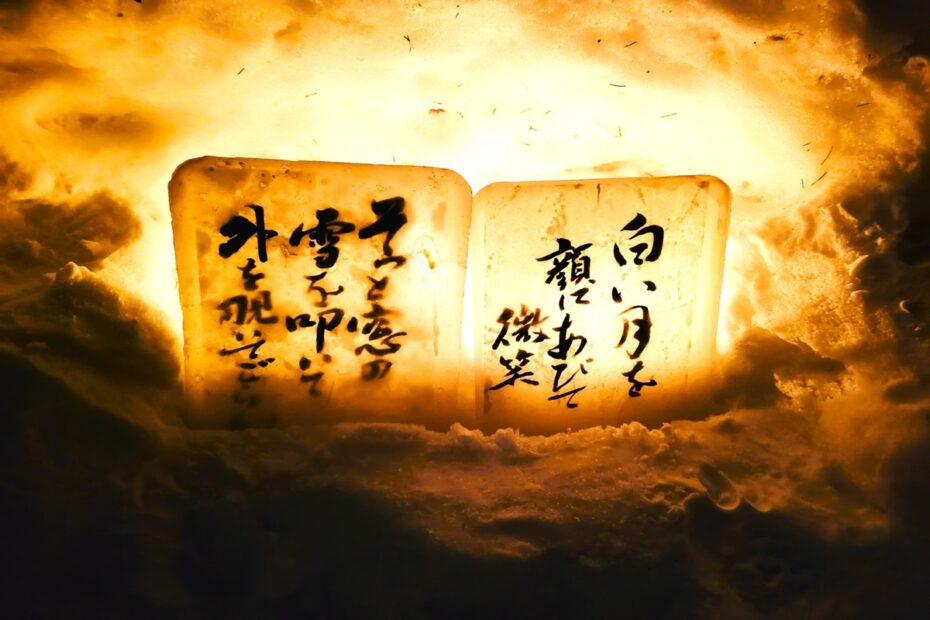 白い月を
顔にあびて
微笑
そっと窓の
雪を叩いて
外を